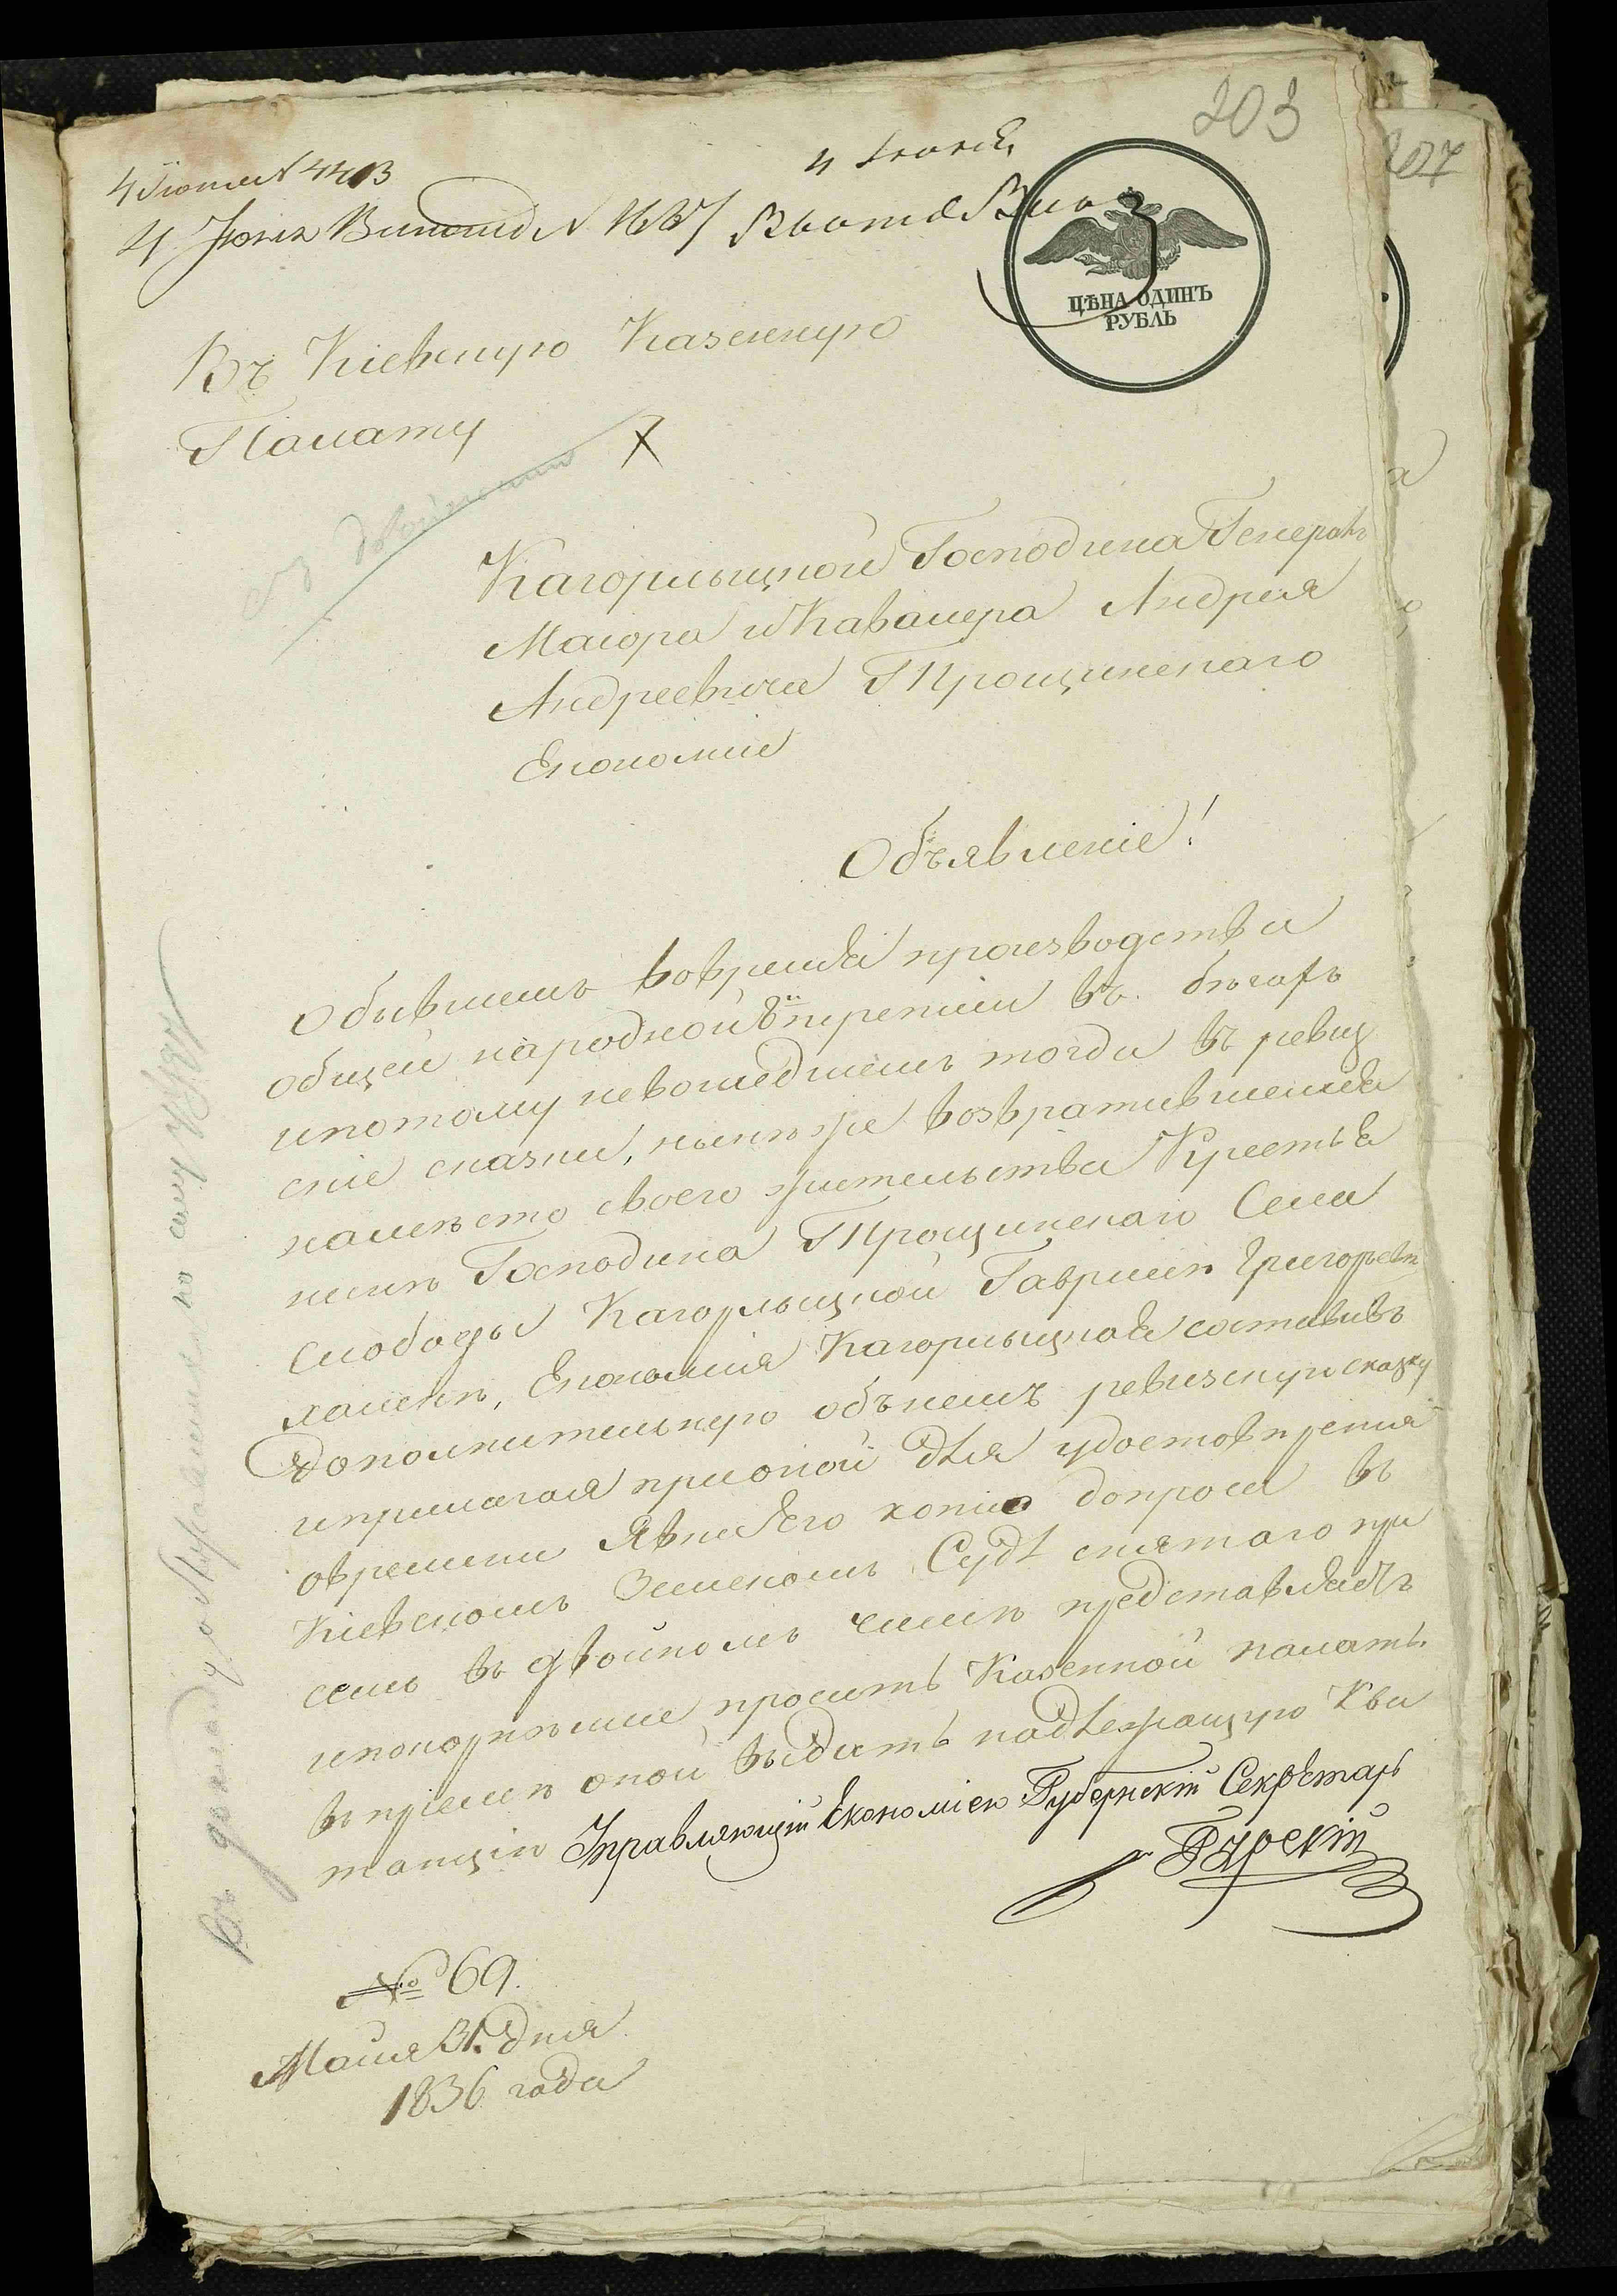 203
207
4 Июня
4 Июня № 4413
4 Июня № 1667
ЦѢНА ОДИНЪ
РУБЛЬ
Въ Кіевскую Казенную
Палату
Кагорлыцкой Господина Генералъ
Маіора и Кавалера Андрея
Андреевича Трощинскаго
Економіи
Объявленіе!
Обывшемъ вовремя производства
общей народной 8й переписи въ бѣгахъ
ипотому невошедшемъ тогда въ ревиз
скіе сказки, нынѣ же возвратившемся
намѣсто своего жительства Крестья
нинѣ Господина Трощинскаго Села
Слободы Кагорлыцкой Гаврилѣ Григорьевѣ
Економія Кагорлыцкая составивъ
дополнительную объ немъ ревизскую сказку
иприлагая прионой для удостовѣренія
овремени явки его копію допроса въ
Кіевскомъ Земскомъ Судѣ снятаго при
семъ въ двойномъ числѣ представляетъ
ипокорнѣйше проситъ Казенной палаты
въ пріемѣ оной выдать надлежащую Кви
танцію Управляющій Економіею Губернскій Секретарь
Гурскій
№ 69.
Маія 31. дня
1836 года